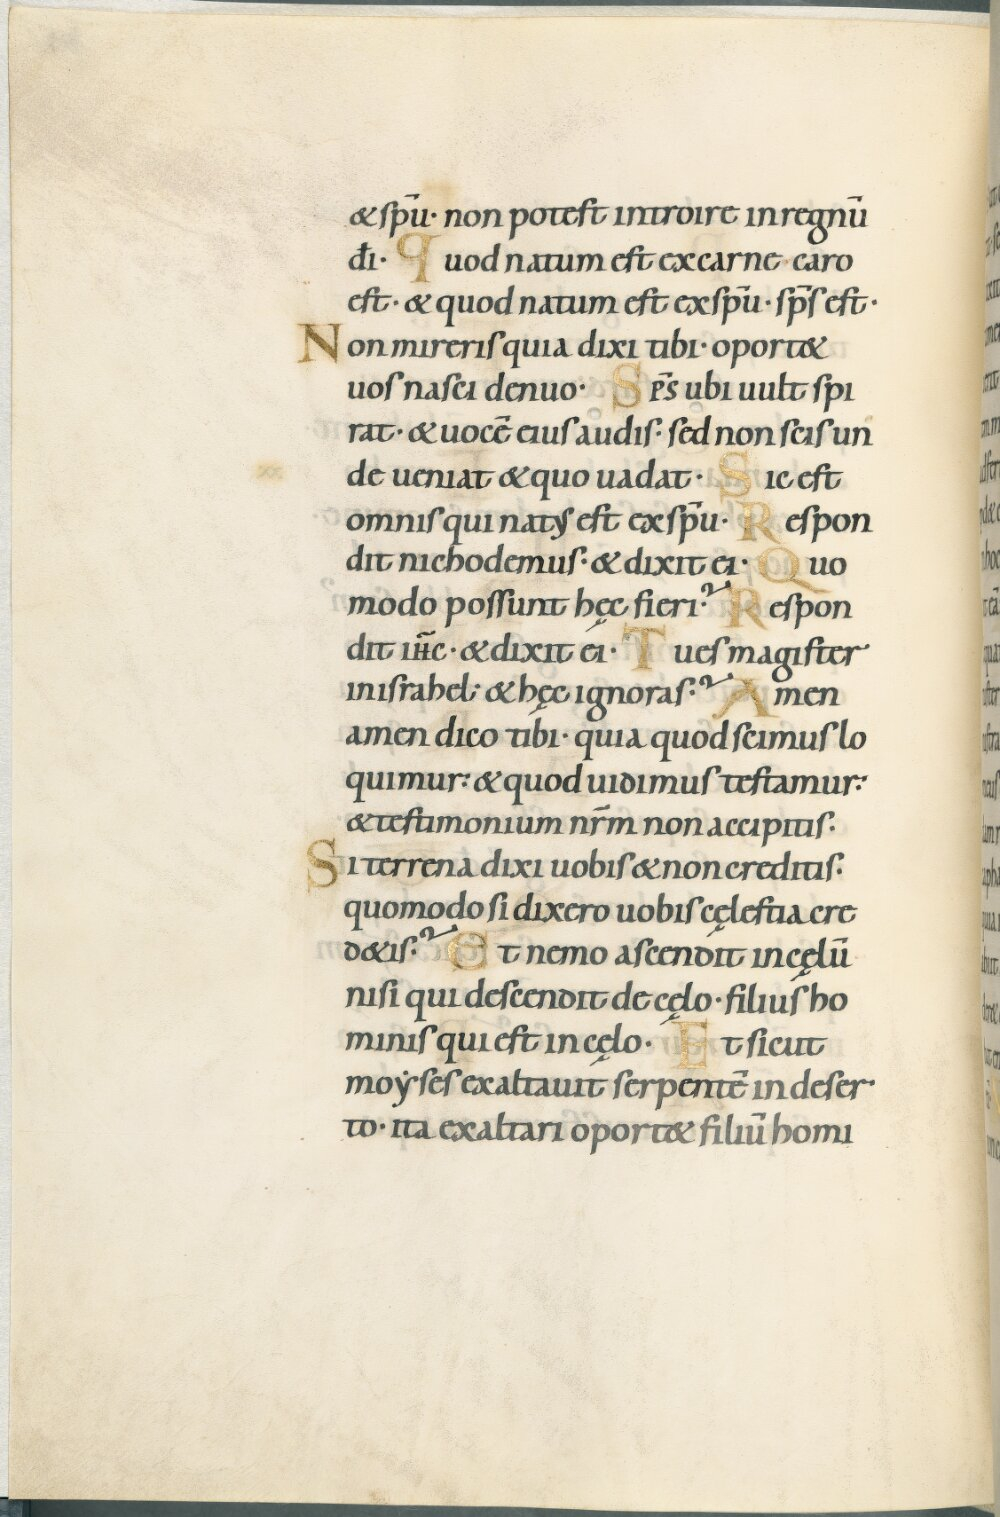 & sp̄u· non potest introire in regnū
d̄i· Quod natum est ex carne caro
est· & quod natum est ex sp̄u· sp̄s est·
Non mireris quia dixi tibi· oport&
uos nasci denuo· Sp̄s ubi uult spi
rat· & uocē eius audis· sed non scis un
de ueniat & quo uadat· Sic est
omnis qui natus est ex sp̄u· Respon
dit nichodemus· & dixit ei· Quo
modo possunt hęc fieri? Respon
dit ih̄c· & dixit ei· Tu es magister
in israhel· & hęc ignoras? Amen
amen dico tibi· quia quod scimus lo
quimur: & quod uidimus testamur:
& testimonium nr̄m non accipitis·
Si terrena dixi uobis & non creditis·
quomodo si dixero uobis cęlestia cre
d&is? Et nemo ascendit in cęlū
nisi qui descendit de cęlo· filius ho
minis qui est in cęlo· Et sicut
moẏses exaltauit serpentē in deser
to· ita exaltari oport& filiū homi